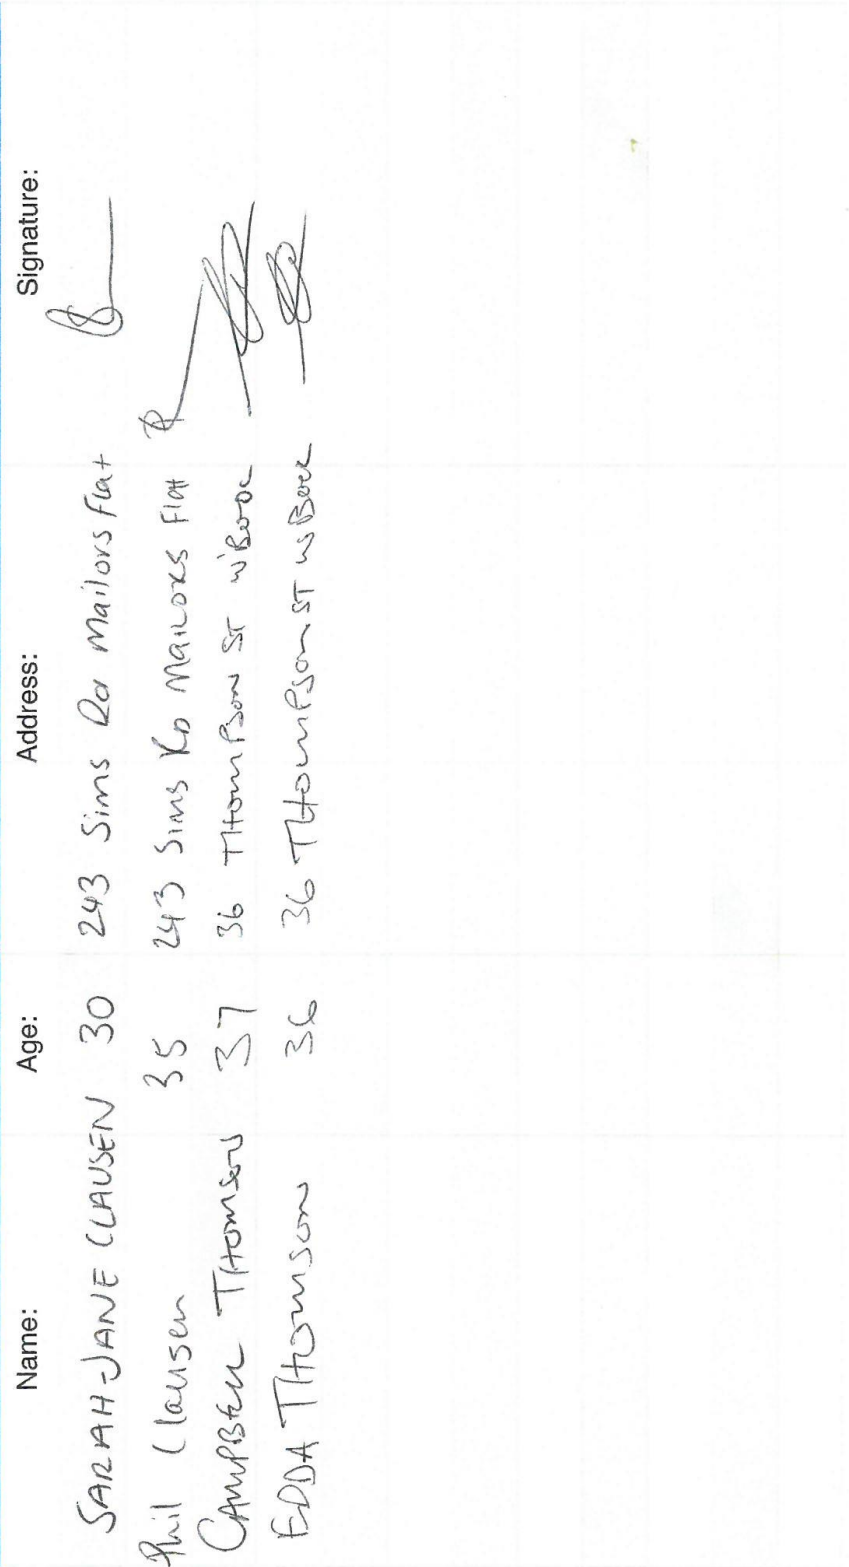 Name: Age: Address: Signature:
SARAH-JANE CLAUSEN 30 243 Sims Rd Mailors Flat
Phil Clausen 35 243 Sims RD Mailors Flat
CAMPBELL THOMSON 37 36 THOMPSON ST W'BOOL
EDDA THOMSON 36 36 THOMPSON ST W BOOL